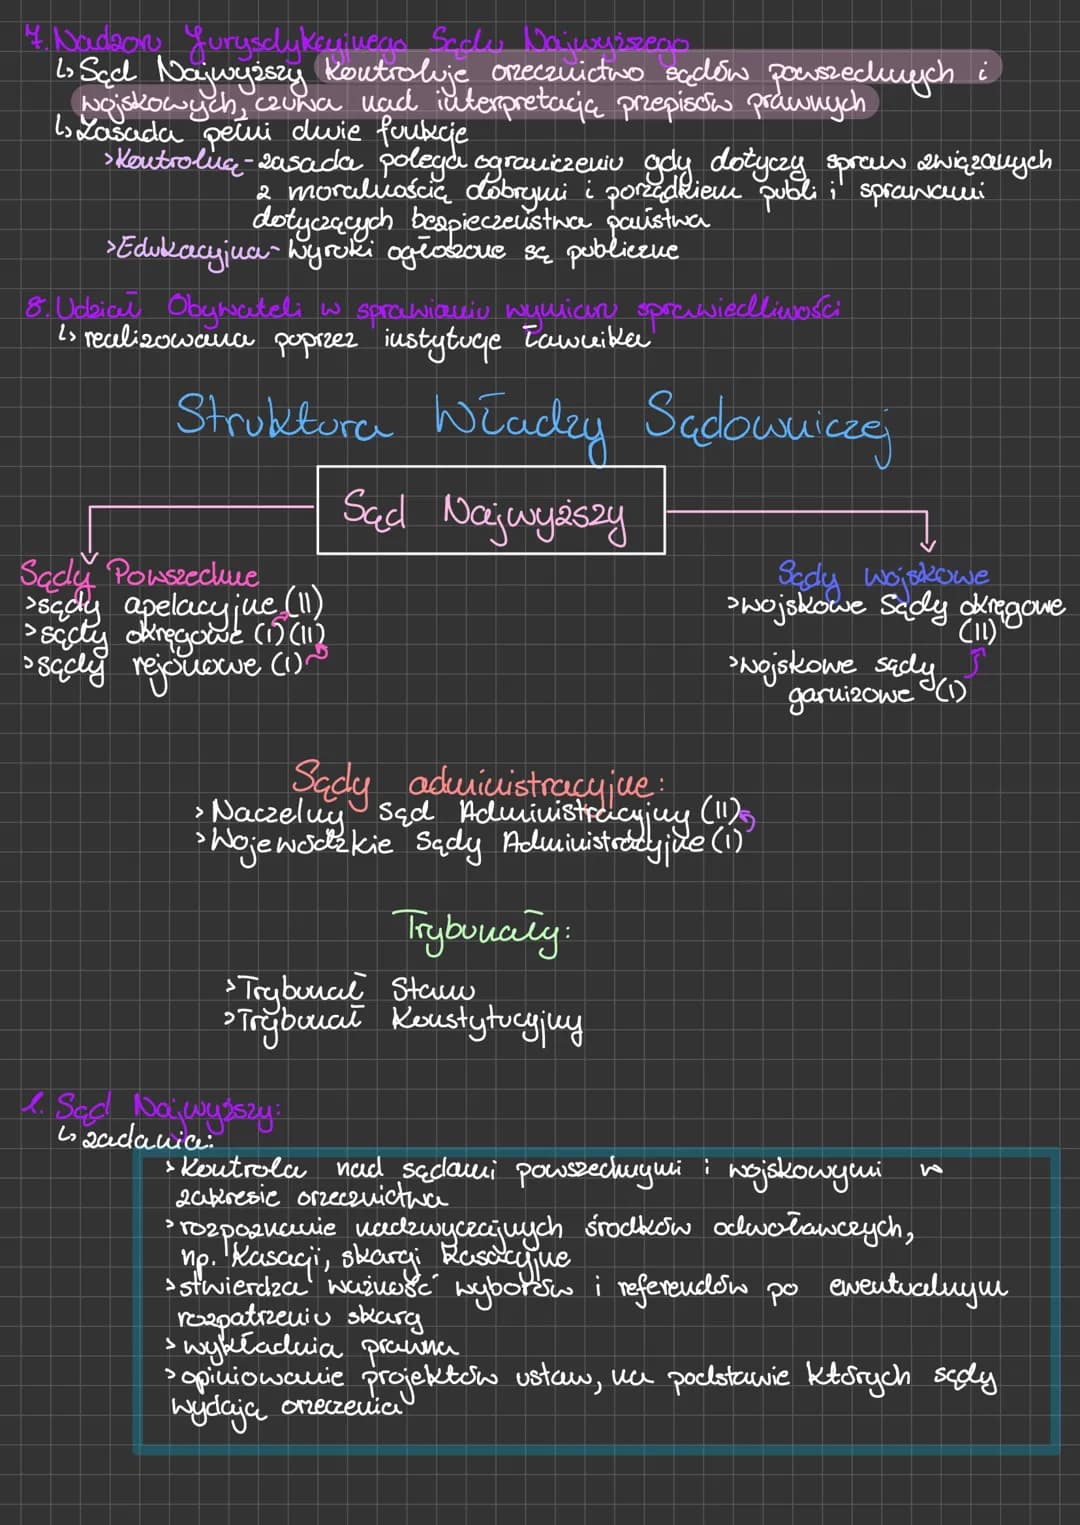 7. Nadzoru Jurysdykcyjnego Sądu Najwyższego
↳ Sąd Najwyższy kontroluje orzecznictwo sądów powszechnych i
wojskowych, czuwa nad interpretacją przepisów prawnych
↳ Zasada pełni dwie funkcje
> Kontrolną - zasada polega ograniczeniu gdy dotyczy spraw związanych
z moralnością, dobrymi i porządkiem publi i sprawami
dotyczących bezpieczeństwa państwa
> Edukacyjna - wyroki ogłoszone są publiczne
8. Udział Obywateli w sprawianiu wymiaru sprawiedliwości
↳ realizowana poprzez instytucje ławnika
Struktura Władzy Sądowniczej
Sąd Najwyższy
Sądy Powszechne
> sądy apelacyjne (II)
> sądy okręgowe (I) (II)
> sądy rejonowe (I)
Sądy wojskowe
> wojskowe Sądy okręgowe
(II)
> wojskowe sądy
garnizowe (I)
Sądy administracyjne:
> Naczelny Sąd Administracyjny (II)
> Wojewódzkie Sądy Administracyjne (I)
Trybunały:
> Trybunał Stanu
> Trybunał Konstytucyjny
1. Sąd Najwyższy:
↳ zadania:
> kontrola nad sądami powszechnymi i wojskowymi w
zakresie orzecznictwa
> rozpoznanie nadzwyczajnych środków odwoławczych,
np. kasacji, skargi kasacyjne
> stwierdza ważność wyborów i referendów po ewentualnym
rozpatrzeniu skarg
> wykładnia prawna
> opiniowanie projektów ustaw, na podstawie których sądy
wydają orzeczenia